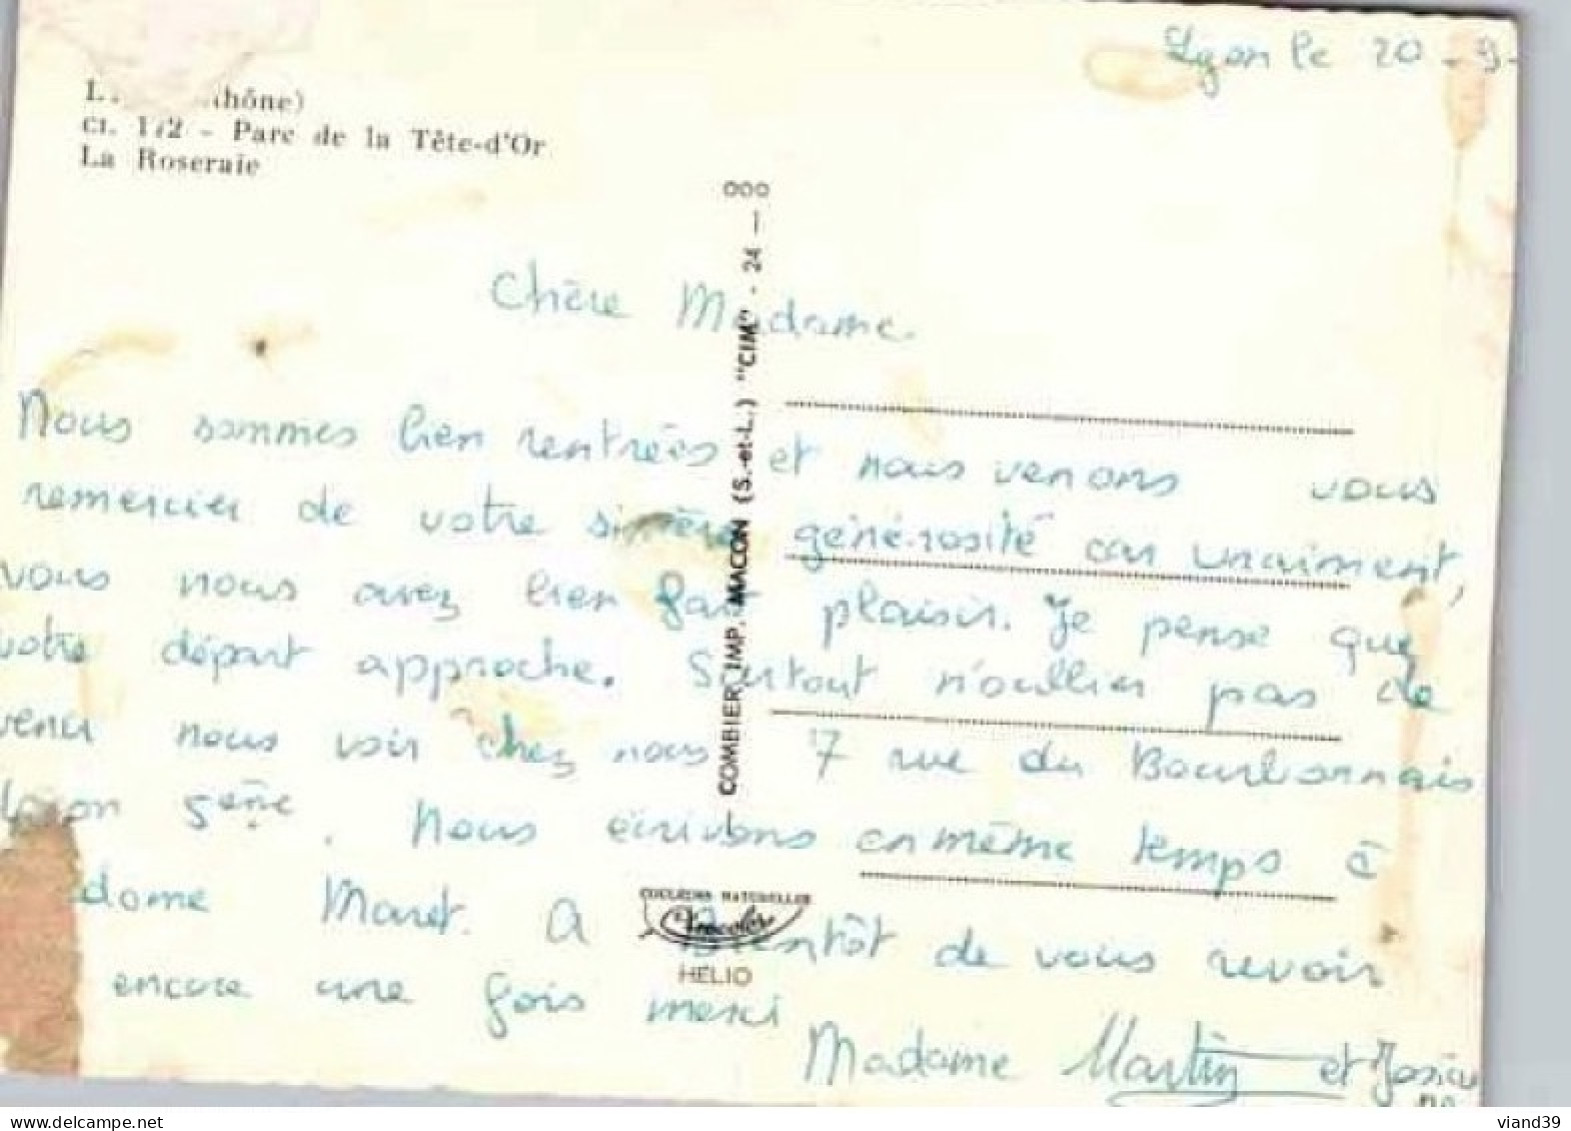 Lyon le 20-9-
Lyon (Rhône)
Cl. 172 - Parc de la Tête-d'Or
La Roseraie
Chère Madame.
Nous sommes bien rentrées et nous venons vous
remercier de votre sincère générosité car vraiment,
vous nous avez bien fait plaisir. Je pense que
votre départ approche. Surtout n'oublier pas de
venir nous voir chez nous 7 rue du Bourbonnais
Lyon 5ème. Nous écrivons en même temps à
dame Maret. A Bientôt de vous revoir
encore une fois merci
Madame Martin et Josia
ne
COMBIER IMP. MACON (S.-et-L.) "CIM" - 24 — 000
COULEURS NATURELLES
HELIO
www.delcampe.net
viand39